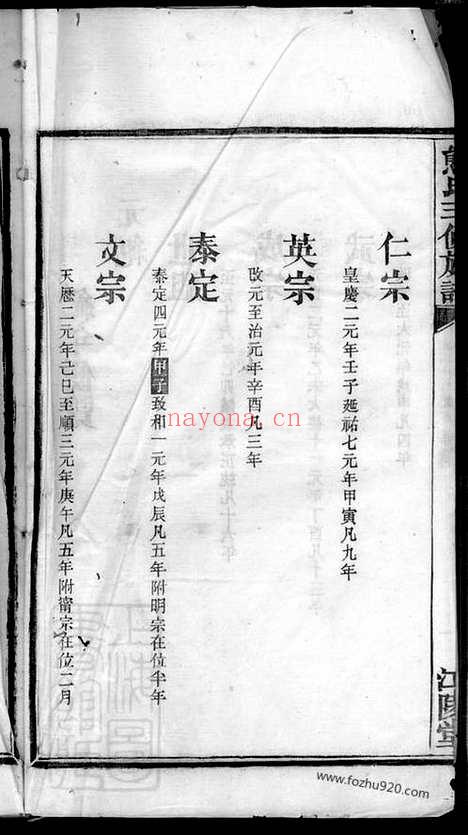 仁宗
皇慶二元年壬子延祐七元年甲寅凡九年
英宗
改元至治元年辛酉凡三年
泰定
泰定四元年甲子致和一元年戊辰凡五年附明宗在位半年
文宗
天厯二元年己巳至順三元年庚午凡五年附甯宗在位二月
三修族譜
江陵堂
nayona.cn
www.fozhu920.com